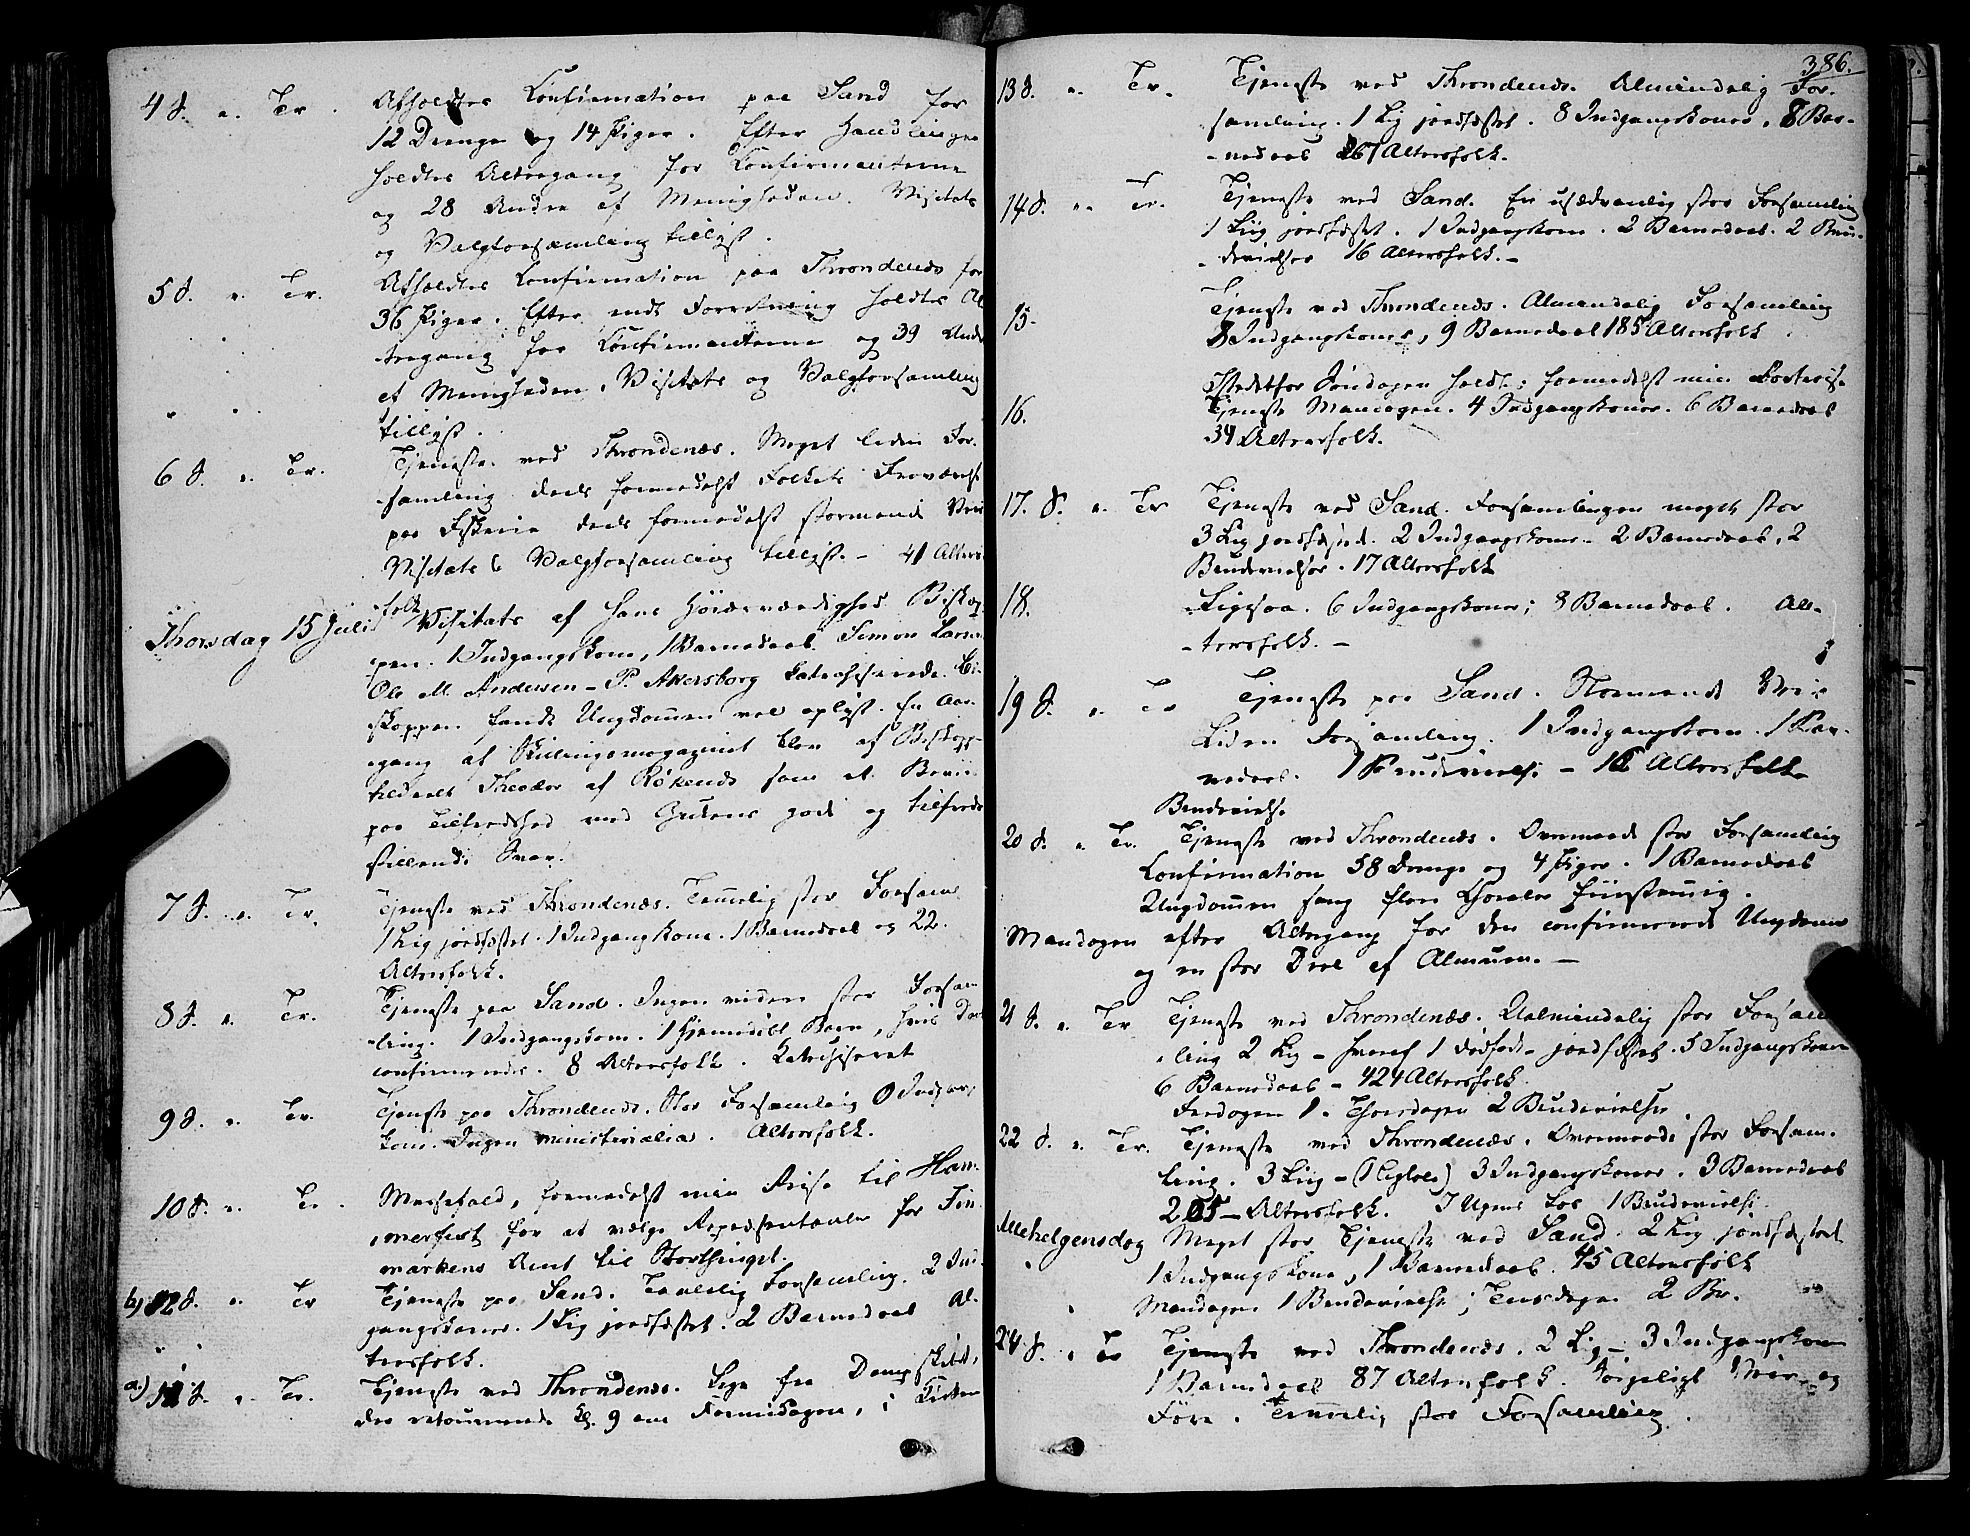 4 S. e. Tr. Afholdtes Confirmation paa Sand for
12 Drenge og 14 Piger. Efter Handlingen
holdtes Altergang for Confirmanterne
og 28 Andre af Menigheden. Visitats
og Valgforsamling tillyst.
5 S. e. Tr. Afholdtes Confirmation paa Throndenæs for
36 Piger. Efter endt Forretning holdtes Al
tergang for Confirmanterne og 39 Andre
af Menigheden. Visitats og Valgforsamling
tillyst.
6 S. e. Tr. Tjeneste ved Throndenæs. Meget liden For-
samling deels formedelst Folkets Fraværelse
paa Fiskerie deels formedelst stormende Veir
Visitats & Valgforsamling tillyst. - 41 Alters
folk
Thorsdag 15 Juli Visitats af Hans Høiærværdighed Biskop-
pen. 1 Indgangskone, 1 Barnedaab. Simon Larsen
Ole M. Andersen - P. Akersborg katechiserede. Bi-
skoppen fandt Ungdommen vel oplyst. En Aar-
gang af Skillingsmagazinet blev af Biskoppen
tildeelt Theodor af Røkenæs som et Beviis
paa Tilfredshed med Guttens gode og tilfreds
stillende Svar.
7 S. e. Tr. Tjeneste ved Throndenæs. Temmelig stor Forsam
1 Lig jordfæstet. 1 Indgangskone. 1 Barnedaab og 22
Altersfolk.
8 S. e. Tr. Tjeneste paa Sand. Ingen videre stor Forsam
ling. 1 Indgangskone. 1 hjemmedøbt Barn, hvis Daab
confirmeredes. 8 Altersfolk. Katechiseret
9 S. e. Tr. Tjeneste paa Throndenæs. Stor Forsamling 0 Indgangs
kone. Ingen ministerialia. Altersfolk.
10 S. e. Tr. Messefald, formedelst min Reise til Ham-
merfest for at vælge Repræsentanter for Fin-
markens Amt til Storthinget.
b) 12 S. e. Tr Tjeneste paa Sand. Taalelig Forsamling. 2 Ind-
gangskoner. 1 Lig jordfæstet. 2 Barnedaab Al-
tersfolk.
a) 11 S. e. Tr. Tjeneste ved Throndenæs. Lige fra Dampskibet,
der retournerede Kl. 9 om Formiddagen, i Kirken
386.
13 S. e. Tr. Tjeneste ved Throndenæs. Almindelig For-
samling. 1 Lig jordfæstet. 8 Indgangskoner. 8 Bar-
nedaab 261 Altersfolk.
14 S. e. Tr. Tjeneste ved Sand. En usædvanlig stor Forsamling
1 Liig jordfæstet. 1 Indgangskone. 2 Barnedaab. 2 Bru-
devielser 16 Altersfolk. -
15. Tjeneste ved Throndenæs. Almindelig Forsamling
8 Indgangskoner, 9 Barnedaab 185 Altersfolk
Istedetfor Søndagen holdtes formedelst min
16. Tjeneste Mandagen. 4 Indgangskoner. 6 Barnedaab
34 Altersfolk.
17. S. e. Tr Tjeneste ved Sand. Forsamlingen meget stor
3 Lig jordfæstede. 2 Indgangskoner. 2 Barnedaab, 2
Brudevielser. 17 Altersfolk
18. Ligesaa. 6 Indgangskoner; 8 Barnedaab. Al-
tersfolk. -
19 S. e. Tr Tjeneste paa Sand. Stormende Veir
Liden Forsamling. 1 Indgangskone. 1 Bar-
nedaab. 1 Brudevielse - 16 Altersfolk
Brudevielse
20 S. e. Tr. Tjeneste ved Throndenæs. Overmaade stor Forsamling
Confirmation 58 Drenge og 4 Piger. 1 Barnedaab
Ungdommen sang flere Choraler fiirstemmig.
Mandagen efter Altergang for den confirmerede Ungdom
og en stor Deel af Almuen. -
21 S. e. Tr Tjeneste ved Throndenæs. Ualmindelig stor Forsam
ling 2 Lig - hvoraf 1 dødfødt - jordfæstet. 5 Indgangskoner
6 Barnedaab - 424 Altersfolk.
Fredagen 1. Thorsdagen 2 Brudevielser.
22 S. e. Tr. Tjeneste ved Throndenæs. Overmaade stor Forsam-
ling. 3 Liig - 3 Indgangskoner. 3 Barnedaab
205 - Altersfolk. I Ugens Løb 1 Brudevielse.
Allehelgensdag Meget stor Tjeneste ved Sand. 2 Lig jordfæstet
1 Indgangskone, 1 Barnedaab. 45 Altersfolk
Mandagen 1 Brudevielse; Tirsdagen 2 Br.
24 S. e. Tr Tjeneste ved Throndenæs. 2 Lig - 3 Indgangskoner
1 Barnedaab 87 Altersfolk. Sørgeligt Veir og
Føre. Temmelig stor Forsamling.